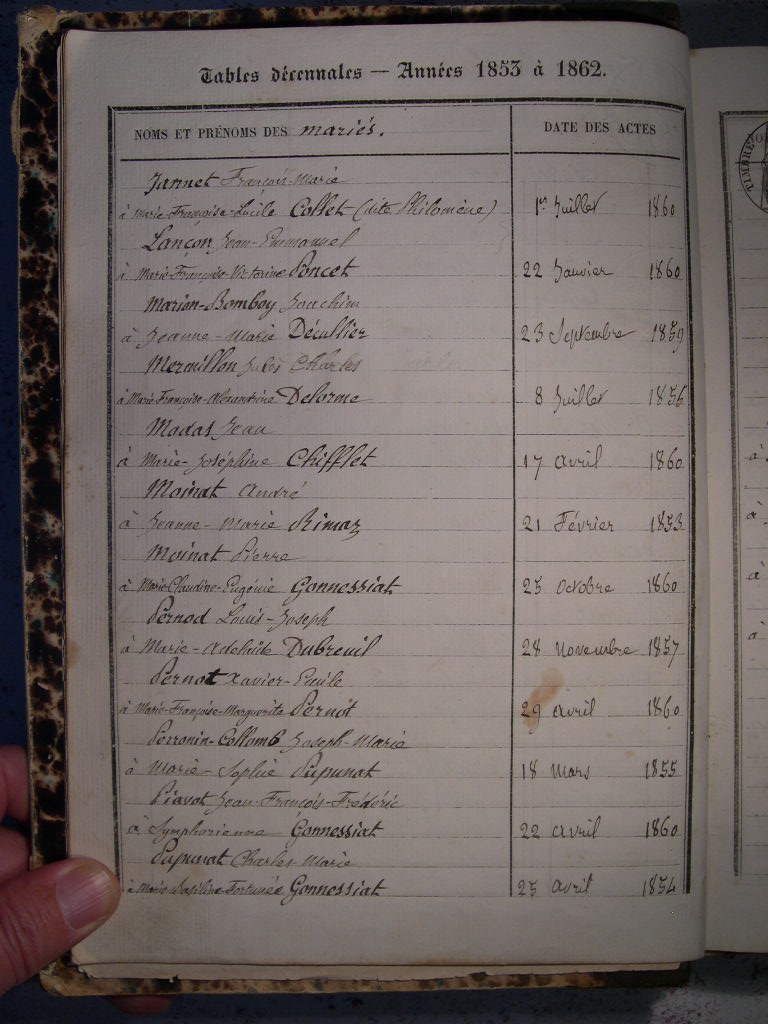 Tables décennales — Années 1853 à 1862.
NOMS ET PRÉNOMS DES mariés. DATE DES ACTES
Jannet François-Marie
à Marie-Françoise-Lucile Collet (dite Philomène) 1er Juillet 1860
Lançon Jean-Emmanuel
à Marie-Françoise-Victorine Poncet 22 Janvier 1860
Marion-Bomboy Joachim
à Jeanne-Marie Décullier 23 Septembre 1859
Mermillon Jules Charles
à Marie-Françoise-Alexandrine Delorme 8 Juillet 1856
Modas Jean
à Marie-Joséphine Chifflet 17 avril 1860
Moinat André
à Jeanne-Marie Rimaz 21 Février 1853
Moinat Pierre
à Marie-Claudine-Eugénie Gonnessiat 25 Octobre 1860
Pernod Louis-Joseph
à Marie-Adelaïde Dubreuil 28 Novembre 1857
Pernot Xavier-Emile
à Marie-Françoise-Marguerite Pernot 29 avril 1860
Perronin-Collomb Joseph-Marie
à Marie-Sophie Pupunat 18 Mars 1855
Piavot Jean-François-Frédéric
à Symphorienne Gonnessiat 22 avril 1860
Pupunat Charles-Marie
à Marie Fortunée Gonnessiat 25 avril 1854
TIMBRE
à
à
à
à